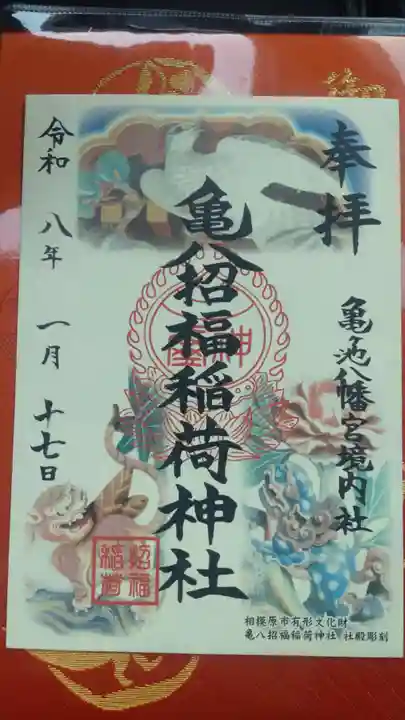 奉拝
亀ヶ池八幡宮境内社
亀八招福稲荷神社
令和八年一月十七日
招福
稲荷
相模原市有形文化財
亀八招福稲荷神社 社殿彫刻